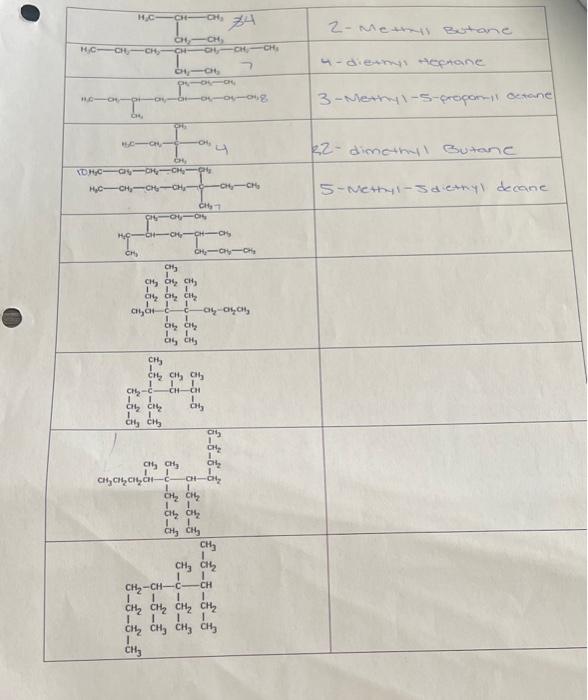 H₃C—CH—CH₃ 34
2-Methyl Butane
CH₂—CH₃
H₃C—CH₂—CH₂—CH—CH₂—CH₂—CH₃
7
4-diethyl Heptane
CH₂—CH₃
CH₂—CH₂—CH₃
8
3-Methyl-5-propanyl octane
CH₃
CH₃
H₃C—CH₂—C—CH₃ 4
22-dimethyl Butane
CH₃
10 H₃C—CH₂—CH₂—CH₂—CH₂
H₃C—CH₂—CH₂—CH₂—C—CH₂—CH₃
5-Methyl-5diethyl decane
CH₃ 7
CH₂—CH₂—CH₃
H₂C—CH—CH₂—CH—CH₃
CH₃ CH₂—CH₂—CH₃
CH₃
CH₃ CH₂ CH₃
CH₂ CH₂ CH₂
CH₃CH—C—C—CH₂—CH₂CH₃
CH₂ CH₂
CH₃ CH₃
CH₃
CH₂ CH₃ CH₃
CH₂—C—CH—CH
CH₂ CH₂ CH₃
CH₃ CH₃
CH₃
CH₂
CH₃ CH₃ CH₂
CH₃CH₂CH₂CH—C—CH—CH₂
CH₂ CH₂
CH₂ CH₂
CH₃ CH₃
CH₃
CH₃ CH₂
CH₂—CH—C—CH
CH₂ CH₂ CH₂ CH₂
CH₂ CH₃ CH₃ CH₃
CH₃